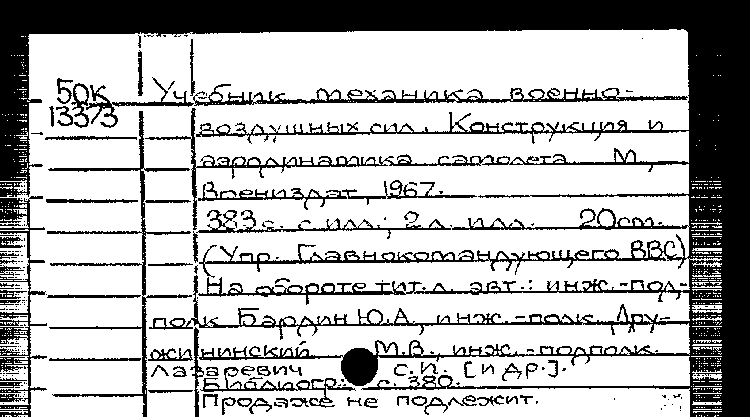 50К
13373
Учебник механика военно-
воздушных сил. Конструкция и
аэродинамика самолета М.,
Воениздат, 1967.
383 с. с илл.; 2 л. илл. 20 см.
(Упр. Главнокомандующего ВВС)
На обороте тит. л. авт.: инж.-под-
полк Бардин Ю.А., инж.-полк. Дру-
жининский М.В., инж.-подполк.
Лазаревич С.И. [и др.].
Библиогр.: с. 380.
Продаже не подлежит.